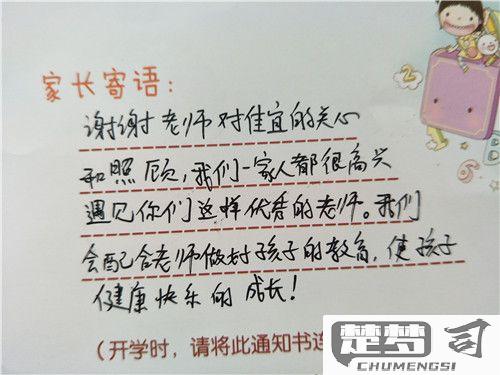 家长寄语：
谢谢老师对佳宜的关心
和照顾，我们一家人都很高兴
遇见你们这样优秀的老师。我们
会配合老师做好孩子的教育，使孩子
健康快乐的成长！
（开学时，请将此通知书连
楚梦司
CHUMENGSI
2